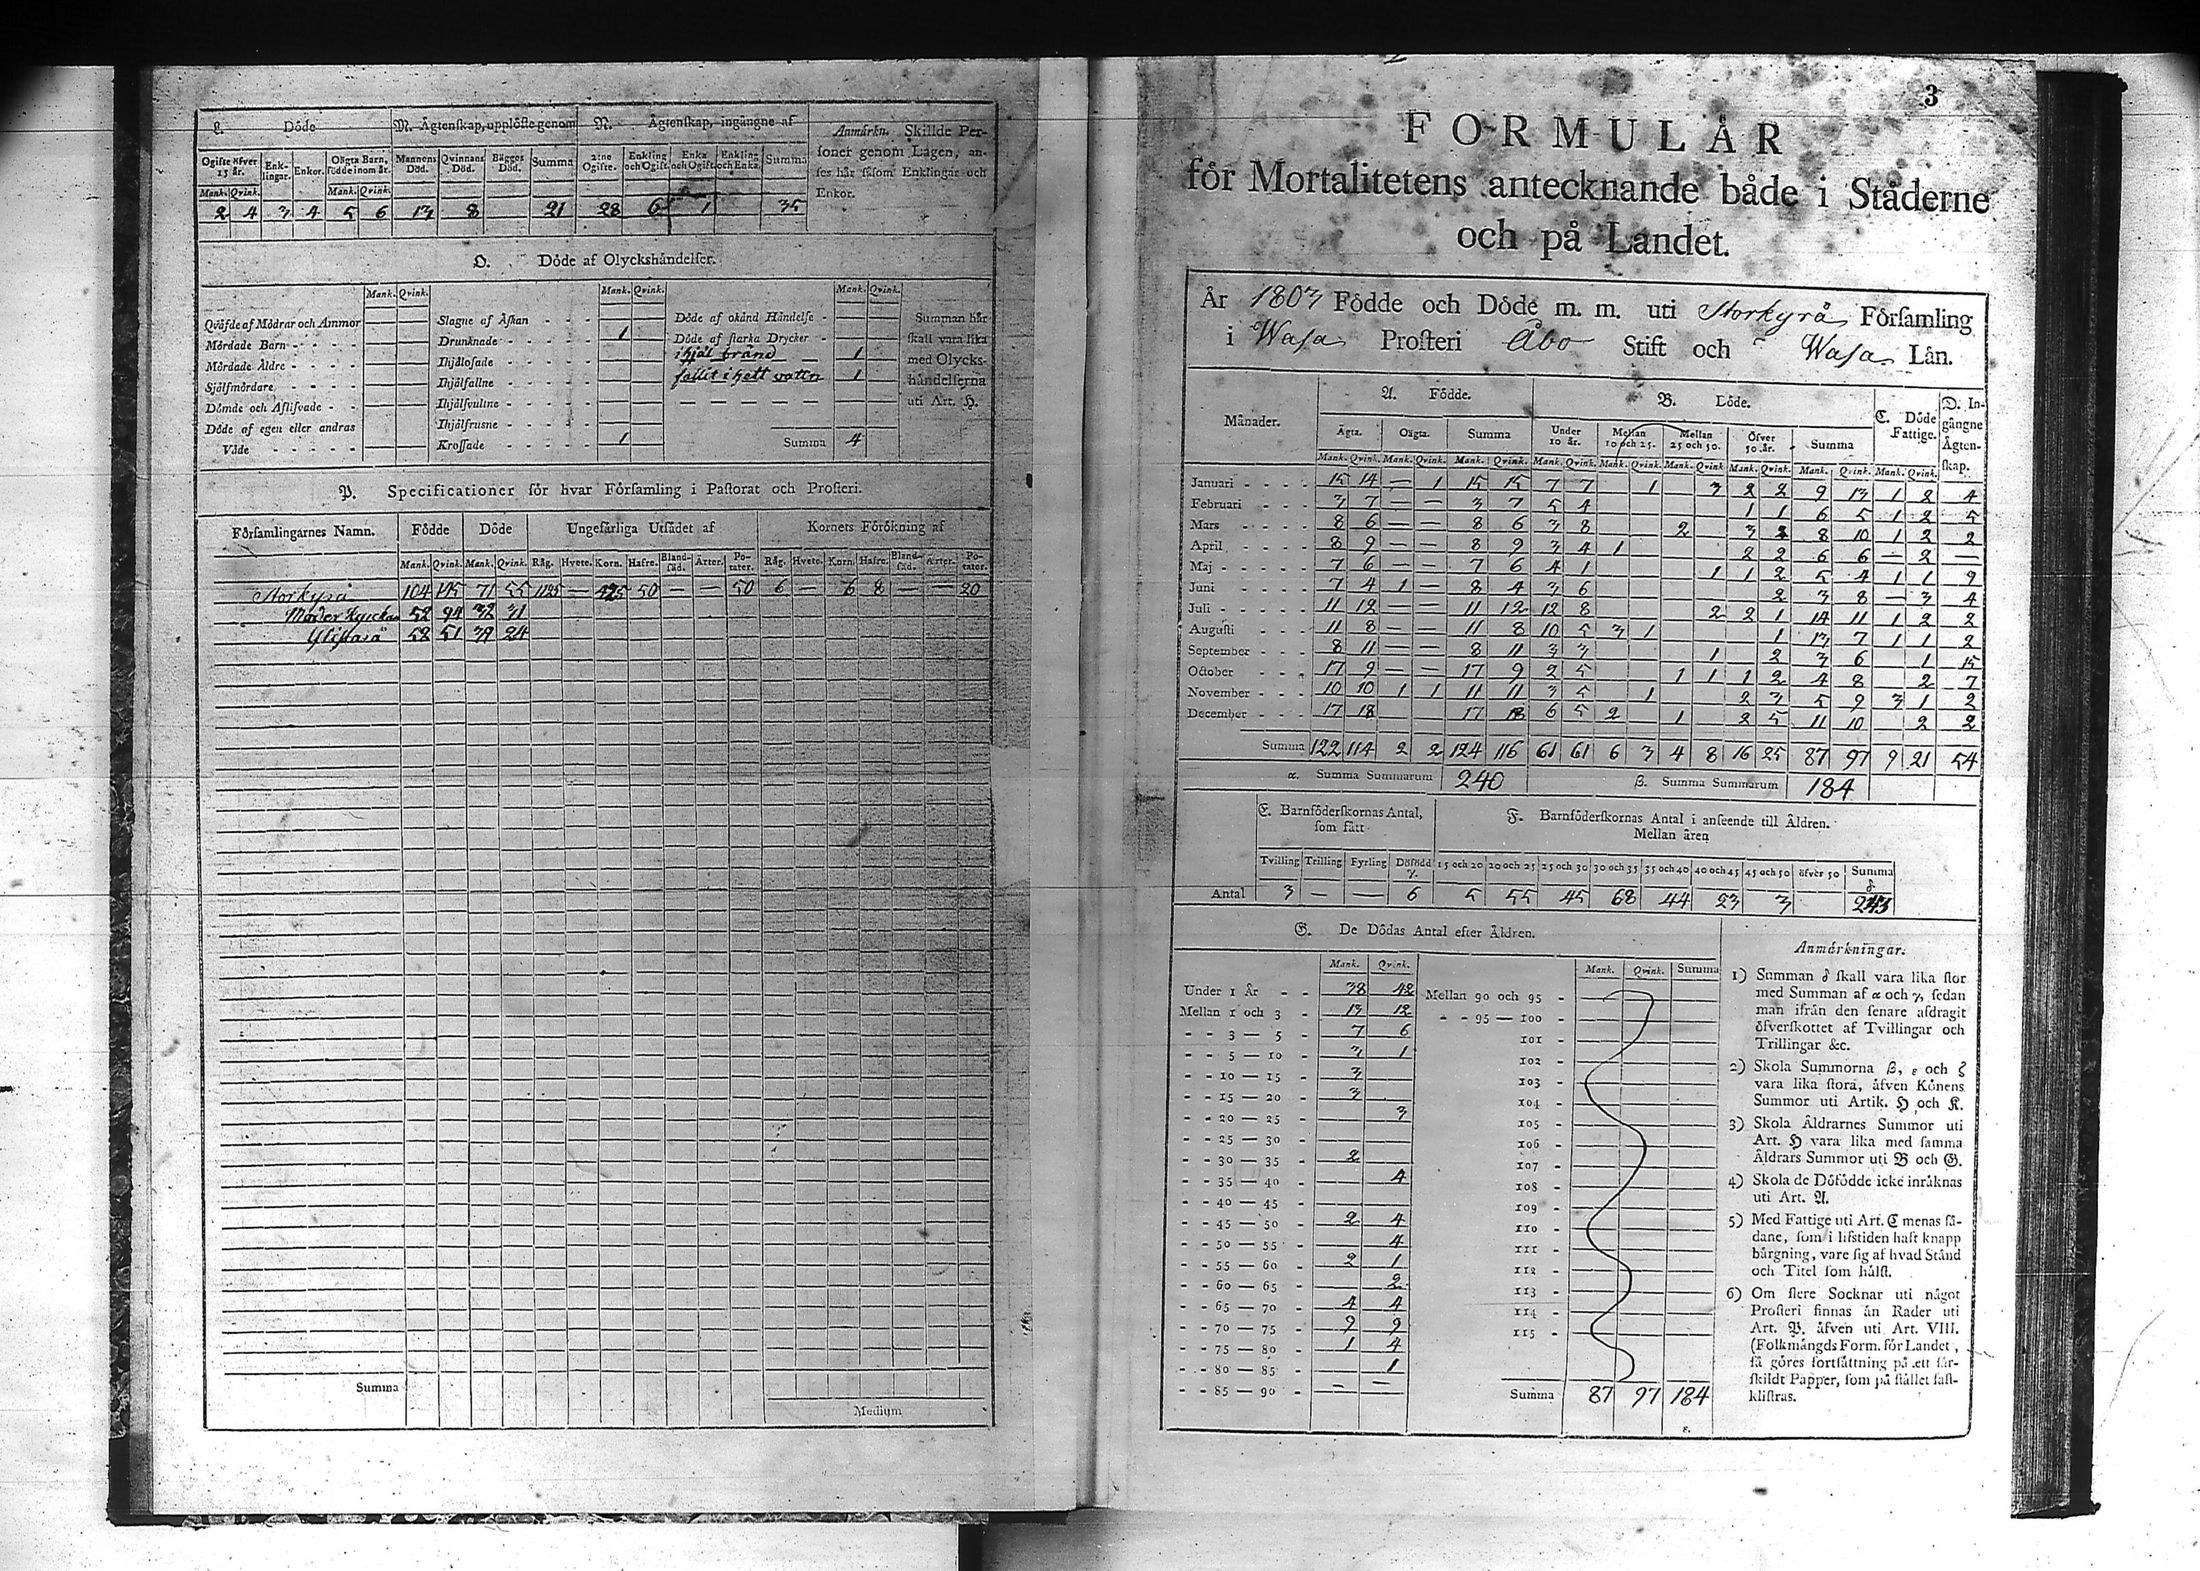 L. Döde
M. Ägtenskap, upplöste genom
N. Ägtenskap, ingångne af
Anmärkn. Skillde Personer genom Lagen, anses här såsom Enklingar och Enkor.
Ogifte öfver 15 år. Enklingar. Enkor. Oägta Barn, födde inom år. Mannens Död. Qvinnans Död. Bägges Död. Summa 2:ne Ogifte. Enkling och Ogift. Enka och Ogift. Enkling och Enka. Summa
Mank. Qvink. Mank. Qvink.
2 4 3 4 5 6 13 8 21 28 6 1 35
O. Döde af Olyckshändelser.
Mank. Qvink. Mank. Qvink. Mank. Qvink.
Qväfde af Mödrar och Ammor
Mördade Barn
Mördade Äldre
Sjelfmördare
Dömde och Aflifvade
Döde af egen eller andras
Våde
Slagne af Åskan
Drunknade 1
Ihjälosade
Ihjälfallne
Ihjälsvultne
Ihjälfrusne
Krossade 1
Döde af okänd Händelse
Döde af starka Drycker
ihjäl bränd 1
fallit i hett vatten 1
Summa 4
Summan här skall vara lika med Olyckshändelserna uti Art. H.
P. Specificationer för hvar Församling i Pastorat och Prosteri.
Församlingarnes Namn. Födde Döde Ungefärliga Utsädet af Kornets Förökning af
Mank. Qvink. Mank. Qvink. Råg. Hvete. Korn. Hafre. Blandsäd. Ärter. Potater. Råg. Hvete. Korn. Hafre. Blandsäd. Ärter. Potater.
Storkyrå 104 145 71 55 1125 — 425 50 — — 50 6 — 6 8 — — 20
Moder Kyrckan 52 94 32 31
Ylistarå 52 51 39 24
Summa
Medium
3
FORMULÄR
för Mortalitetens antecknande både i Städerne
och på Landet.
År 1803 Födde och Döde m. m. uti Storkyrå Församling
i Wasa Prosteri Åbo Stift och Wasa Län.
Månader. A. Födde. B. Döde. C. Döde Fattige. D. Ingångne Ägtenskap.
Ägta. Oägta. Summa Under 10 år. Mellan 10 och 25. Mellan 25 och 50. Öfver 50 år. Summa
Mank. Qvink. Mank. Qvink. Mank. Qvink. Mank. Qvink. Mank. Qvink. Mank. Qvink. Mank. Qvink. Mank. Qvink. Mank. Qvink.
Januari 15 14 — 1 15 15 7 7 1 3 2 2 9 13 1 2 4
Februari 3 7 — — 3 7 5 4 1 1 6 5 1 2 5
Mars 8 6 — — 8 6 3 8 2 3 8 10 1 2 2
April 8 9 — — 8 9 3 4 1 2 2 6 6 — 2 —
Maj 7 6 — — 7 6 4 1 1 1 2 5 4 1 1 9
Juni 7 4 1 — 8 4 3 6 2 3 8 — 3 4
Juli 11 12 — — 11 12 12 8 2 2 1 14 11 1 2 2
Augusti 11 8 — — 11 8 10 5 3 1 1 13 7 1 1 2
September 8 11 — — 8 11 3 3 1 2 3 6 1 15
October 17 9 — — 17 9 2 5 1 1 1 2 4 8 2 7
November 10 10 1 1 11 11 3 5 1 2 3 5 9 3 1 2
December 17 18 17 18 6 5 2 1 2 5 11 10 2 2
Summa 122 114 2 2 124 116 61 61 6 3 4 8 16 25 87 97 9 21 54
α. Summa Summarum 240 β. Summa Summarum 184
E. Barnföderskornas Antal, som fått
F. Barnföderskornas Antal i anseende till Åldren.
Mellan åren
Tvilling Trilling Fyrling Döfödd γ. 15 och 20 20 och 25 25 och 30 30 och 35 35 och 40 40 och 45 45 och 50 öfver 50 Summa δ
Antal 3 — — 6 5 55 45 68 44 23 3 243
G. De Dödas Antal efter Åldren.
Mank. Qvink. Mank. Qvink. Summa
Under 1 År 38 42
Mellan 1 och 3 13 12
3 — 5 7 6
5 — 10 3 1
10 — 15 3
15 — 20 3
20 — 25 3
25 — 30
30 — 35 2
35 — 40 4
40 — 45
45 — 50 2 4
50 — 55 4
55 — 60 2 1
60 — 65 2
65 — 70 4 4
70 — 75 9 9
75 — 80 1 4
80 — 85 1
85 — 90 — —
Mellan 90 och 95
95 — 100
101
102
103
104
105
106
107
108
109
110
111
112
113
114
115
Summa 87 97 184
ε.
Anmärkningar.
1) Summan δ skall vara lika stor
med Summan af α och γ, sedan
man ifrån den senare afdragit
öfverskottet af Tvillingar och
Trillingar &c.
2) Skola Summorna β, ε och ζ
vara lika stora, äfven Könens
Summor uti Artik. H och K.
3) Skola Åldrarnes Summor uti
Art. H vara lika med samma
Åldrars Summor uti B och G.
4) Skola de Döfödde icke inräknas
uti Art. A.
5) Med Fattige uti Art. C menas sådane,
som i lifstiden haft knapp
bärgning, vare sig af hvad Stånd
och Titel som hälst.
6) Om flere Socknar uti något
Prosteri finnas än Rader uti
Art. P. äfven uti Art. VIII.
(Folkmängds Form. för Landet,
så göres fortsättning på ett särskildt
Papper, som på stället fastklistras.